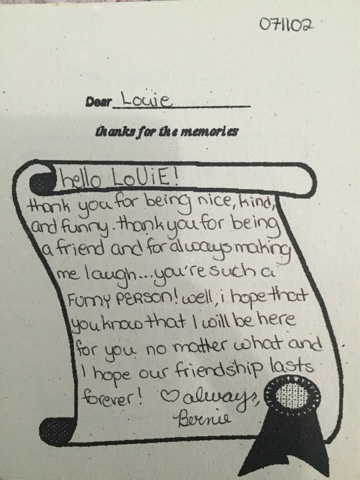 071102
Dear Louie
thanks for the memories
hello LoUiE!
thank you for being nice, kind,
and funny. thank you for being
a friend and for always making
me laugh...you're such a
FUnny PERSON! well, i hope that
you know that I will be here
for you no matter what and
I hope our friendship lasts
forever! ♡ always,
Bernie